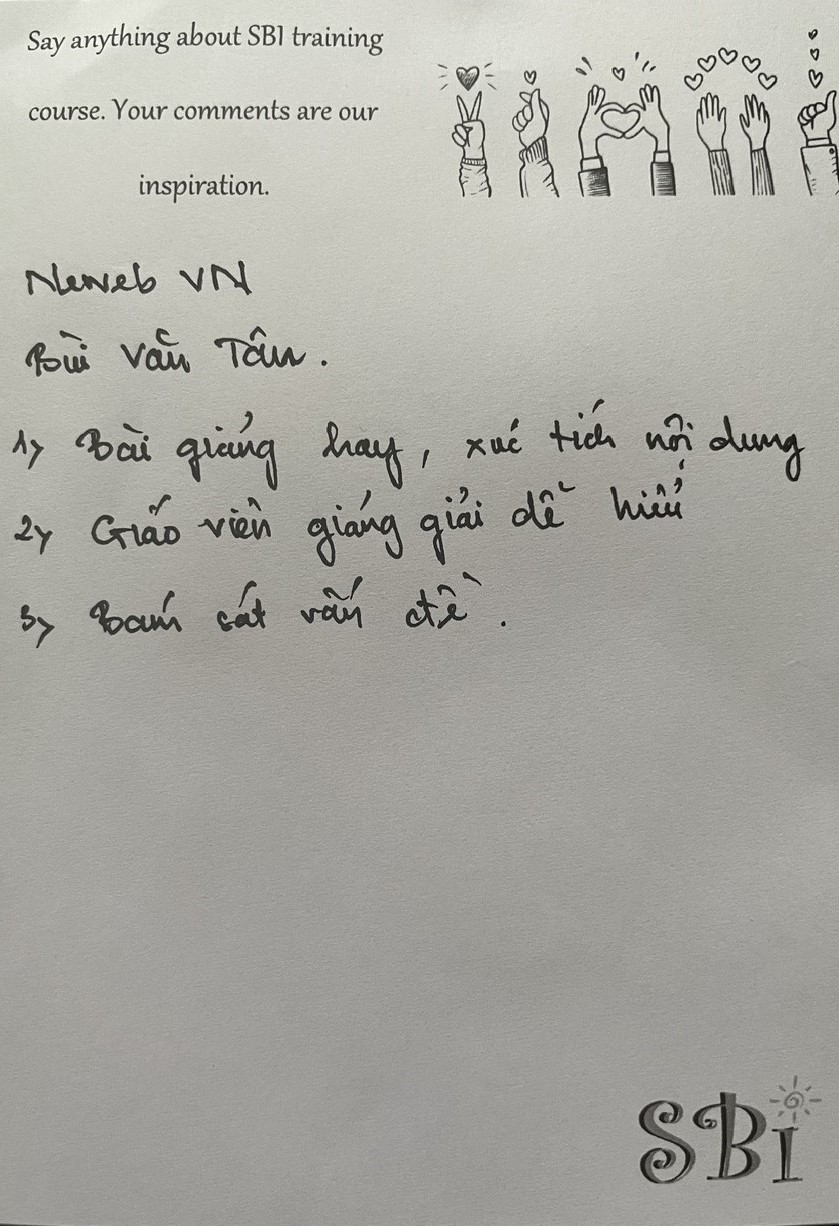 Say anything about SBI training
course. Your comments are our
inspiration.
Neweb VN
Bùi Văn Tân.
1) Bài giảng hay, xúc tích nội dung
2) Giáo viên giảng giải dễ hiểu
3) Bám sát vấn đề.
SBI